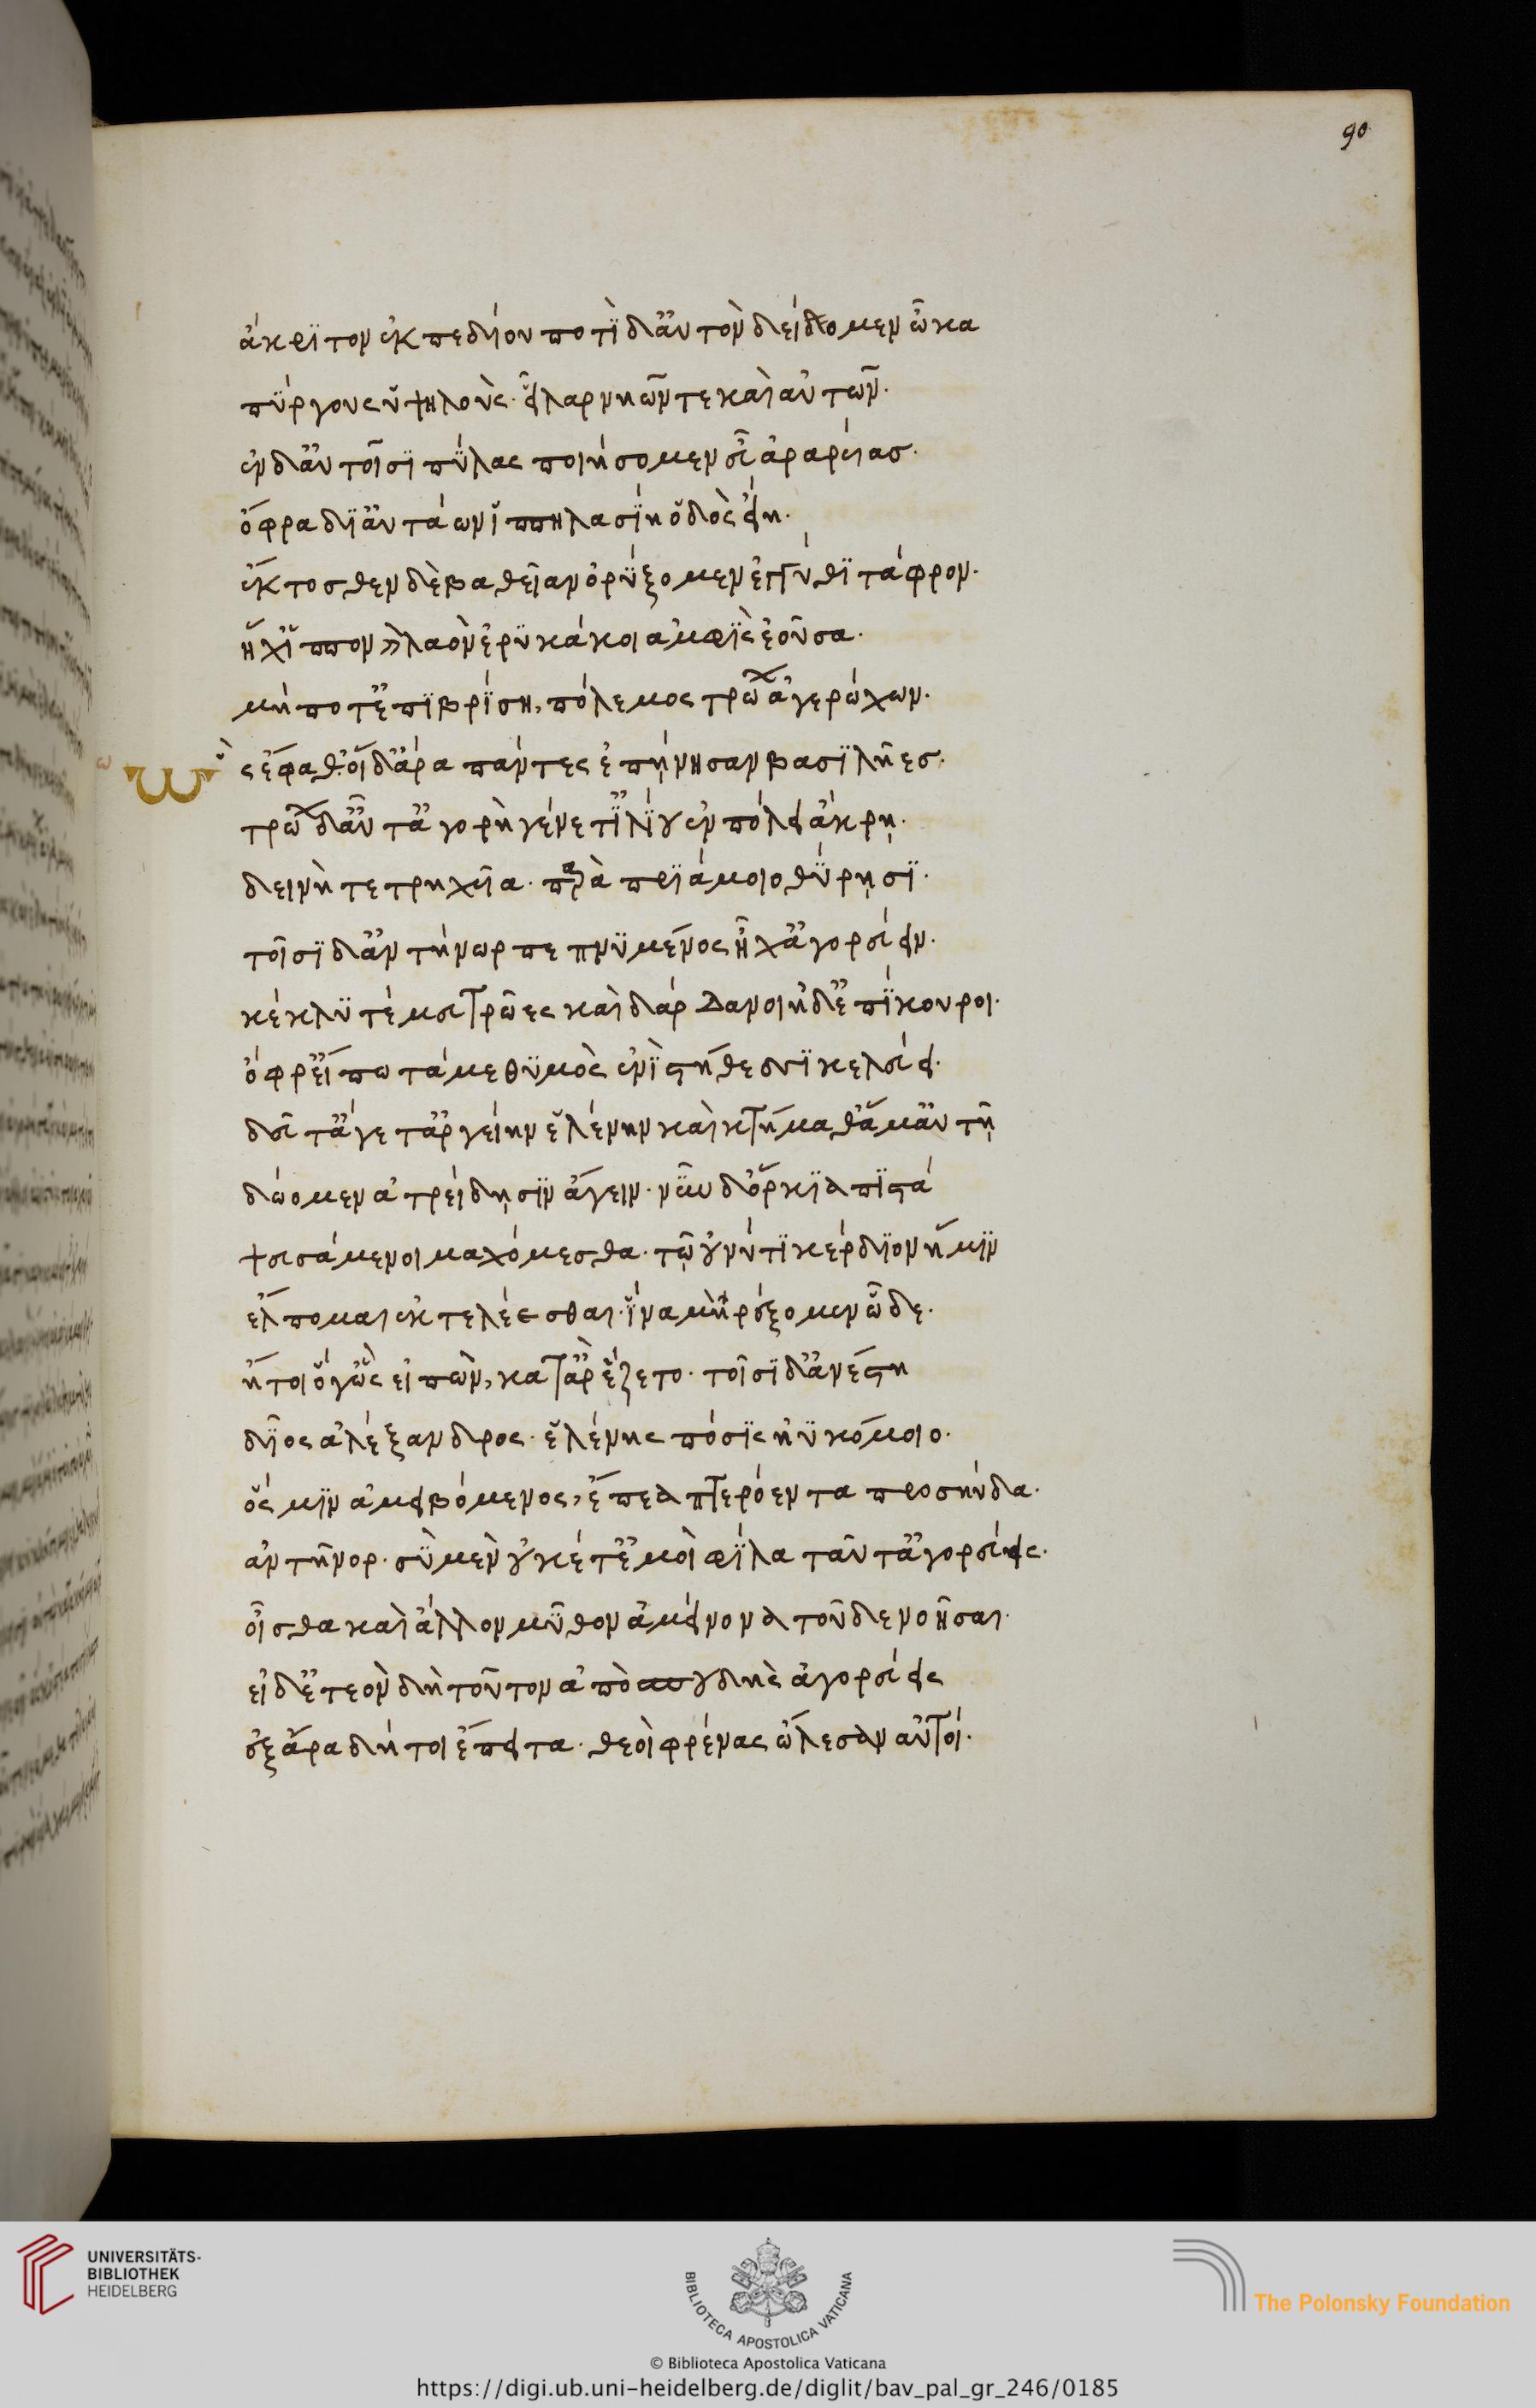 90
ἄκριτον ἐκ πεδίου ποτὶ δ' αὐτὸν δείμομεν ὦκα
πύργους ὑψηλοὺς· εἶλαρ νηῶν τε καὶ αὐτῶν·
ἐν δ' αὐτοῖσι πύλας ποιήσομεν εὖ ἀραρυίας·
ὄφρα δι' αὐτάων ἱππηλασίη ὁδὸς εἴη·
ἔκτοσθεν δὲ βαθεῖαν ὀρύξομεν ἐγγύθι τάφρον·
ἥ χ' ἵππον καὶ λαὸν ἐρυκάκοι ἀμφὶς ἐοῦσα·
μή ποτ' ἐπιβρίση, πόλεμος τρώων ἀγερώχων·
ὣς ἔφαθ' οἱ δ' ἄρα πάντες ἐπῄνησαν βασιλῆες·
τρώων δ' αὖτ' ἀγορὴ γένετ' ἰλίου ἐν πόλει ἄκρῃ·
δεινὴ τετρηχεῖα· παρὰ πριάμοιο θύρῃσι·
τοῖσι δ' ἀντήνωρ πεπνυμένος ἦρχ' ἀγορεύειν·
κέκλυτέ μευ τρῶες καὶ δάρδανοι ἠδ' ἐπίκουροι·
ὄφρ' εἴπω τά με θυμὸς ἐνὶ στήθεσσι κελεύει·
δεῦτ' ἄγετ' ἀργείην ἑλένην καὶ κτήμαθ' ἅμ' αὐτῇ
δώομεν ἀτρείδῃσιν ἄγειν· νῦν δ' ὅρκια πιστά
ψευσάμενοι μαχόμεσθα· τῷ οὔ νύ τι κέρδιον ἥμιν
ἔλπομαι ἐκτελέεσθαι· ἵνα μὴ ῥέξομεν ὧδε·
ἤτοι ὅγ' ὣς εἰπὼν, κατ' ἄρ' ἕζετο· τοῖσι δ' ἀνέστη
δῖος ἀλέξανδρος· ἑλένης πόσις ἠυκόμοιο·
ὅς μιν ἀμειβόμενος, ἔπεα πτερόεντα προσηύδα·
ἀντῆνορ· σὺ μὲν οὐκέτ' ἐμοὶ φίλα ταῦτ' ἀγορεύεις·
οἶσθα καὶ ἄλλον μῦθον ἀμείνονα τοῦδε νοῆσαι·
εἰ δ' ἐτεὸν δὴ τοῦτον ἀπὸ σπουδῆς ἀγορεύεις
ἐξ ἄρα δή τοι ἔπειτα· θεοὶ φρένας ὤλεσαν αὐτοί·
UNIVERSITÄTS-
BIBLIOTHEK
HEIDELBERG
BIBLIOTECA APOSTOLICA VATICANA
The Polonsky Foundation
© Biblioteca Apostolica Vaticana
https://digi.ub.uni-heidelberg.de/diglit/bav_pal_gr_246/0185